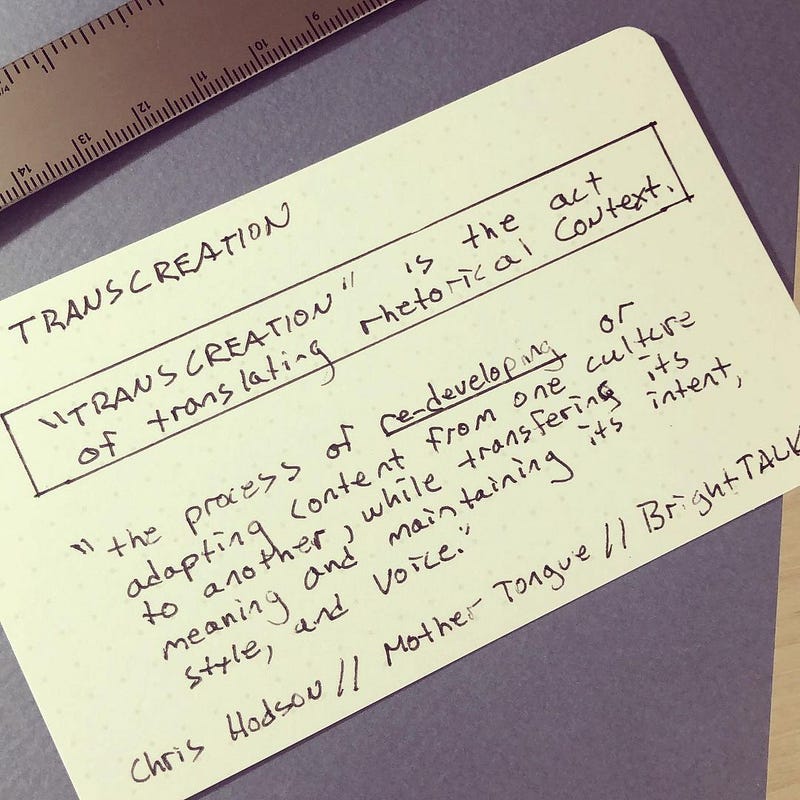 9
10
11
12
13
14
TRANSCREATION
"TRANSCREATION" is the act
of translating rhetorical context.
"the process of re-developing or
adapting content from one culture
to another, while transfering its
meaning and maintaining its intent,
style, and voice."
Chris Hodson // Mother Tongue // BrightTALK